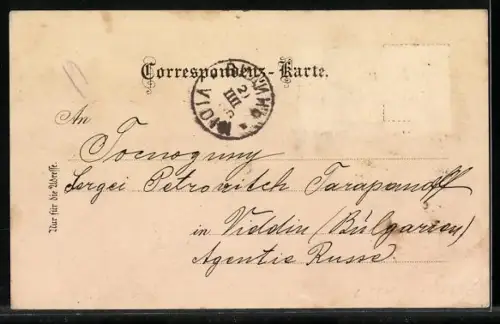 Correspondenz-Karte.
An
Господину
Sergei Petrovitch Tarapanoff
in Viddin (Bulgarien)
Agentie Russe.
Nur für die Adresse.